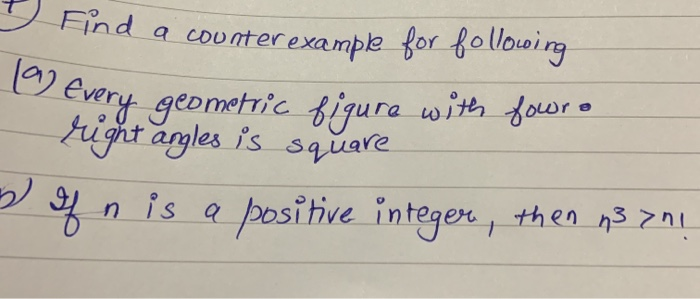 Find a counterexample for following
(a) Every geometric figure with four
right angles is square
b) If n is a positive integer, then n³ > n!